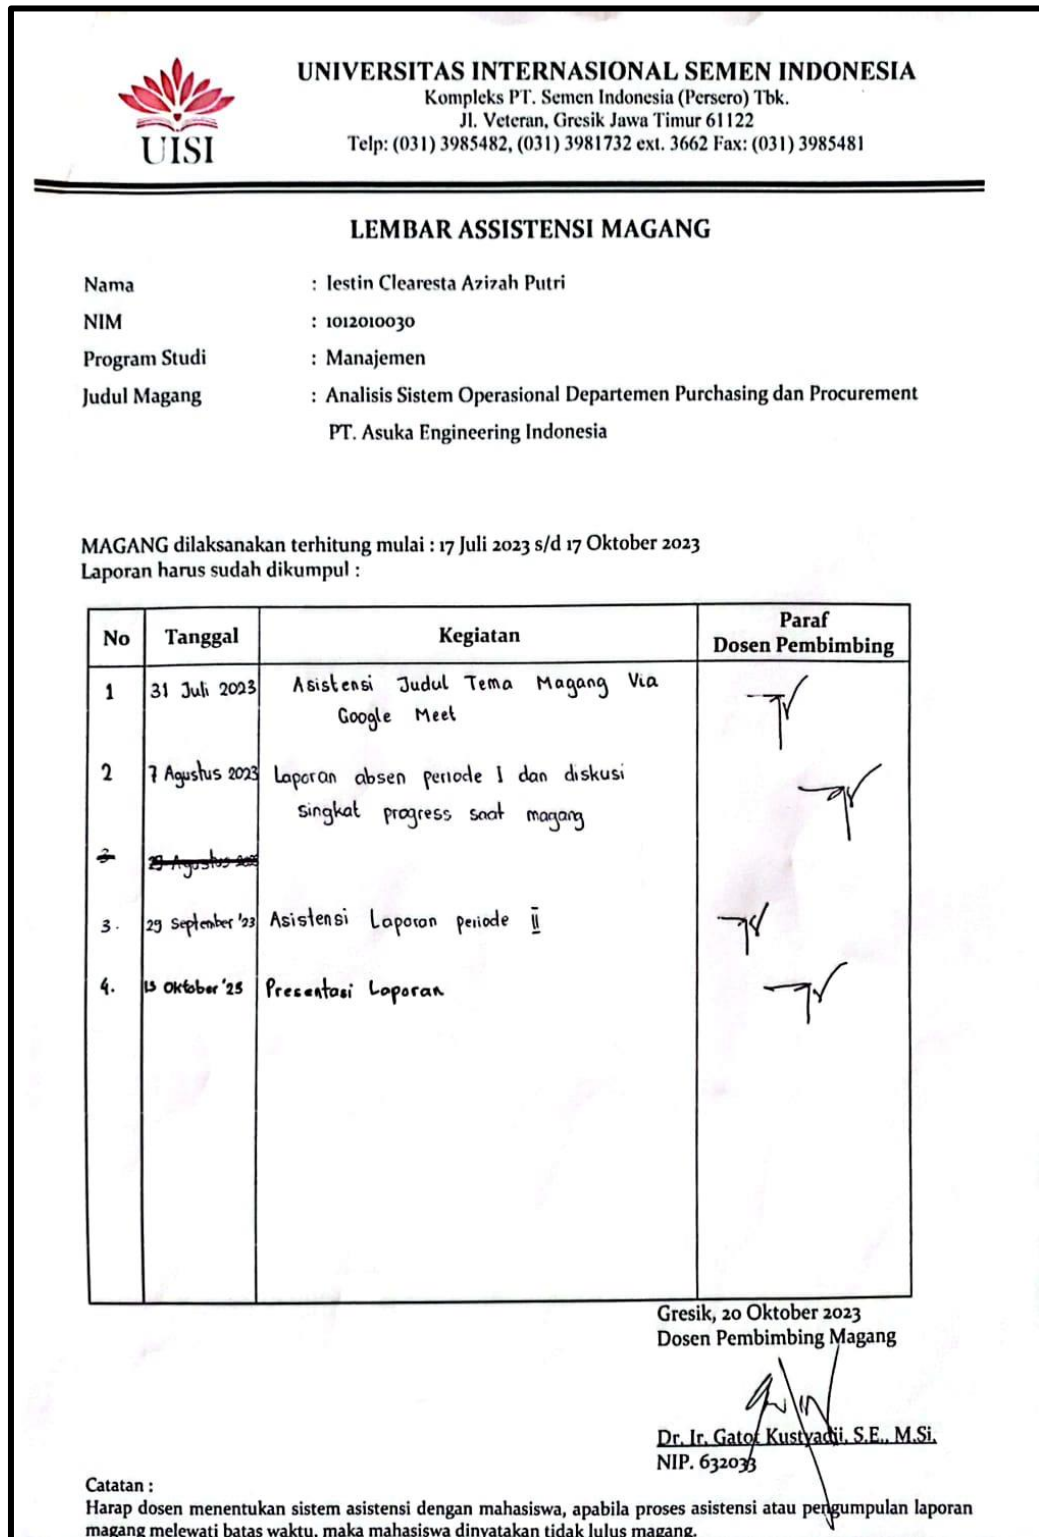 UISI
UNIVERSITAS INTERNASIONAL SEMEN INDONESIA
Kompleks PT. Semen Indonesia (Persero) Tbk.
Jl. Veteran, Gresik Jawa Timur 61122
Telp: (031) 3985482, (031) 3981732 ext. 3662 Fax: (031) 3985481
LEMBAR ASSISTENSI MAGANG
Nama : Iestin Clearesta Azizah Putri
NIM : 1012010030
Program Studi : Manajemen
Judul Magang : Analisis Sistem Operasional Departemen Purchasing dan Procurement
PT. Asuka Engineering Indonesia
MAGANG dilaksanakan terhitung mulai : 17 Juli 2023 s/d 17 Oktober 2023
Laporan harus sudah dikumpul :
No Tanggal Kegiatan Paraf Dosen Pembimbing
1 31 Juli 2023 Asistensi Judul Tema Magang Via
Google Meet
2 7 Agustus 2023 Laporan absen periode I dan diskusi
singkat progress saat magang
3. 29 September '23 Asistensi Laporan periode II
4. Oktober '23 Presentasi Laporan
Gresik, 20 Oktober 2023
Dosen Pembimbing Magang
Dr. Ir. Gatot Kustyadji, S.E., M.Si.
NIP. 632033
Catatan :
Harap dosen menentukan sistem asistensi dengan mahasiswa, apabila proses asistensi atau pengumpulan laporan
magang melewati batas waktu, maka mahasiswa dinyatakan tidak lulus magang.